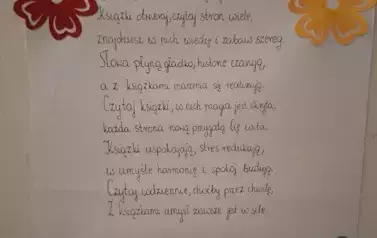 Książki otwieraj, czytaj stron wiele,
znajdziesz w nich wiedzę i zabaw szereg.
Słowa płyną gładko, historie czarują,
a z książkami marzenia się realizują.
Czytaj książki, w nich magia jest skryta,
każda strona nową przygodą Cię wita.
Książki uspokajają, stres redukują,
w umyśle harmonię i spokój budują.
Czytaj codziennie, choćby przez chwilę,
Z książkami umysł zawsze jest w sile.